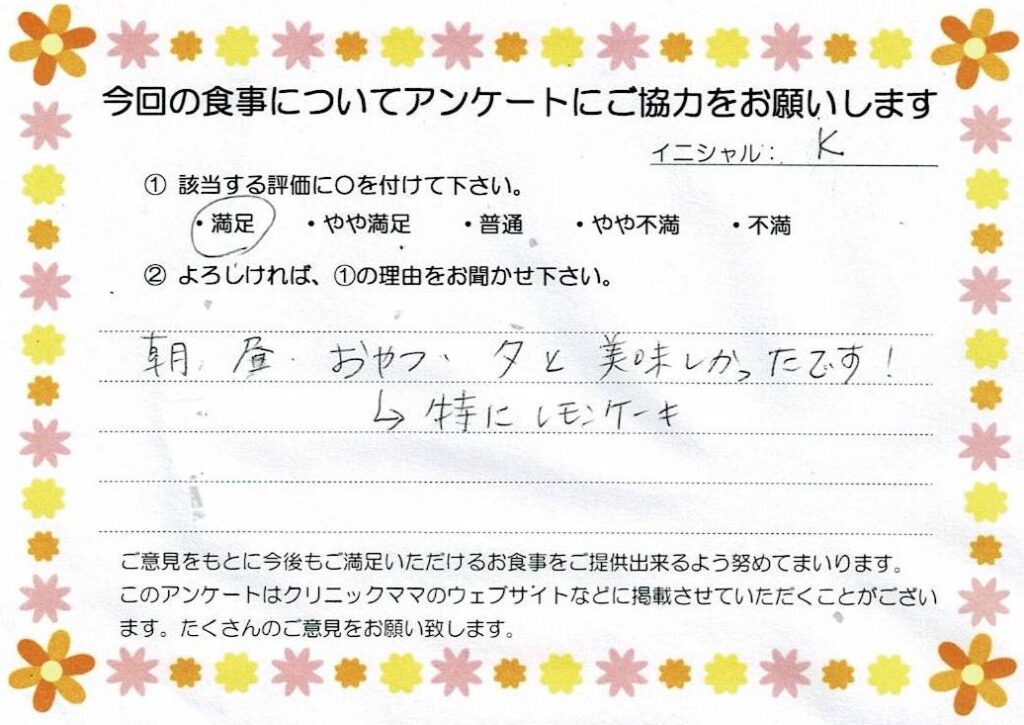 今回の食事についてアンケートにご協力をお願いします
イニシャル： K
① 該当する評価に〇を付けて下さい。
・満足 ・やや満足 ・普通 ・やや不満 ・不満
② よろしければ、①の理由をお聞かせ下さい。
朝、昼、おやつ、夕と美味しかったです！
↳ 特にレモンケーキ
ご意見をもとに今後もご満足いただけるお食事をご提供出来るよう努めてまいります。
このアンケートはクリニックママのウェブサイトなどに掲載させていただくことがござい
ます。たくさんのご意見をお願い致します。